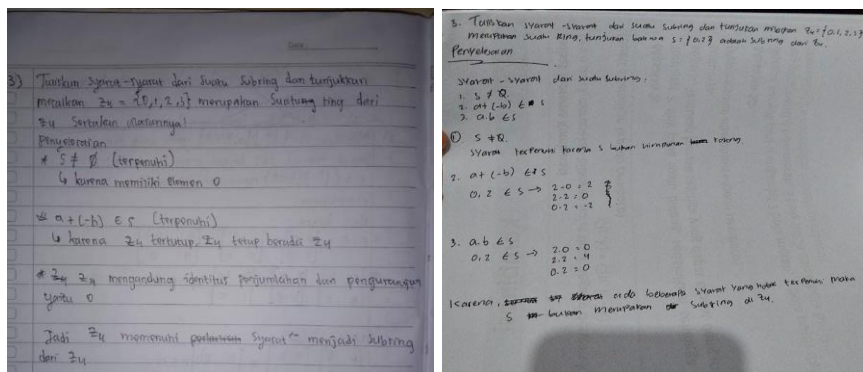 3) Tuliskan syarat-syarat dari suatu subring dan tunjukkan
misalkan Z4 = {0,1,2,3} merupakan ring dari
Z4 Sertakan alasannya!
Penyelesaian
* S ≠ Ø (terpenuhi)
↳ karena memiliki elemen 0
* a + (-b) ∈ S (terpenuhi)
↳ karena Z4 tertutup, Z4 tetap berada Z4
* Z4 mengandung identitas penjumlahan dan pengurangan
yaitu 0
Jadi Z4 memenuhi syarat" menjadi subring
dari Z4
3. Tuliskan syarat-syarat dari suatu subring dan tunjukan misalkan Z4 = {0,1,2,3}
merupakan suatu ring, tunjukan bahwa S = {0,2} adalah subring dari Z4.
Penyelesaian
syarat-syarat dari suatu subring.
1. S ≠ Q.
2. a+(-b) ∈ S
3. a.b ∈ S
① S ≠ Q.
syarat terpenuhi karena S bukan himpunan kosong.
2. a+(-b) ∈ S
0, 2 ∈ S → 2-0 = 2
2-2 = 0
0-2 = -2
3. a.b ∈ S
0, 2 ∈ S → 2.0 = 0
2.2 = 4
0.2 = 0
Karena, ada beberapa syarat yang tidak terpenuhi maka
S bukan merupakan subring di Z4.